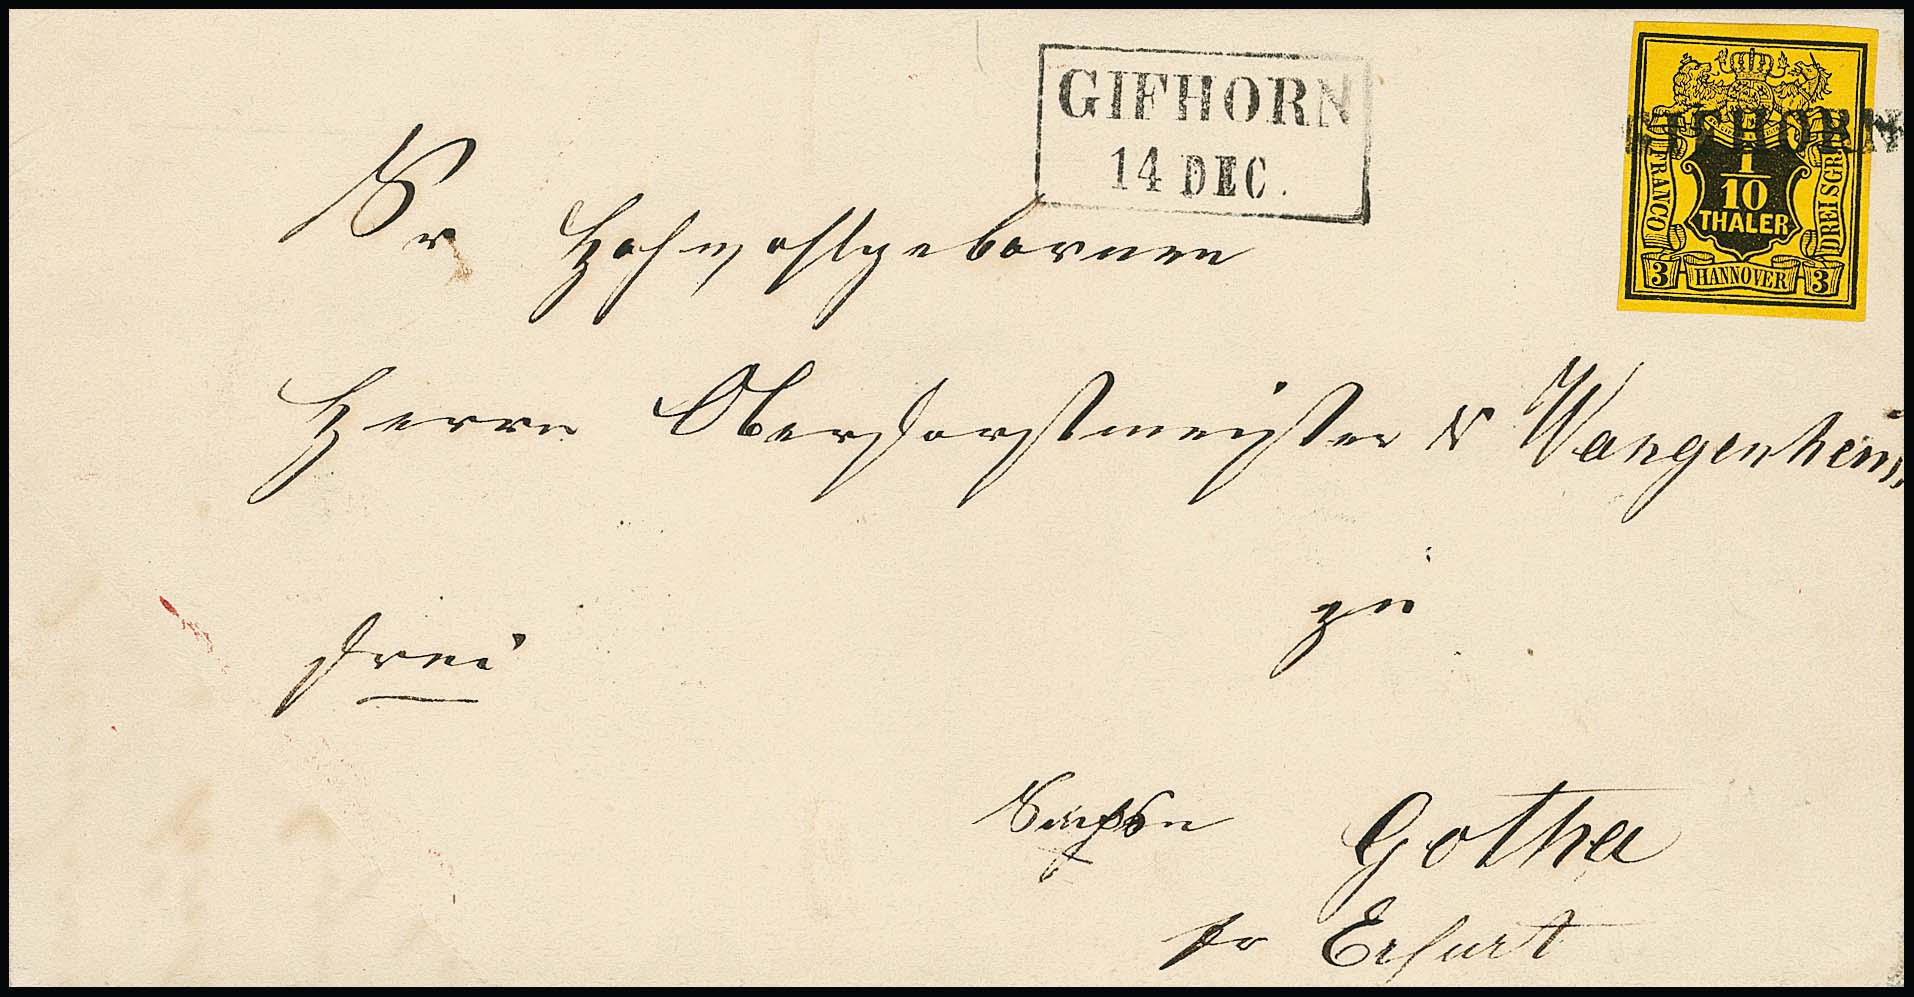 GIFHORN
14 DEC.
GIFHORN
1/10
THALER
FRANCO
DREI SGR.
3 HANNOVER 3
Sr Hochwohlgebornen
Herrn Oberforstmeister v Wangenheim
zu
frei
Sachsen Gotha
pr Erfurt